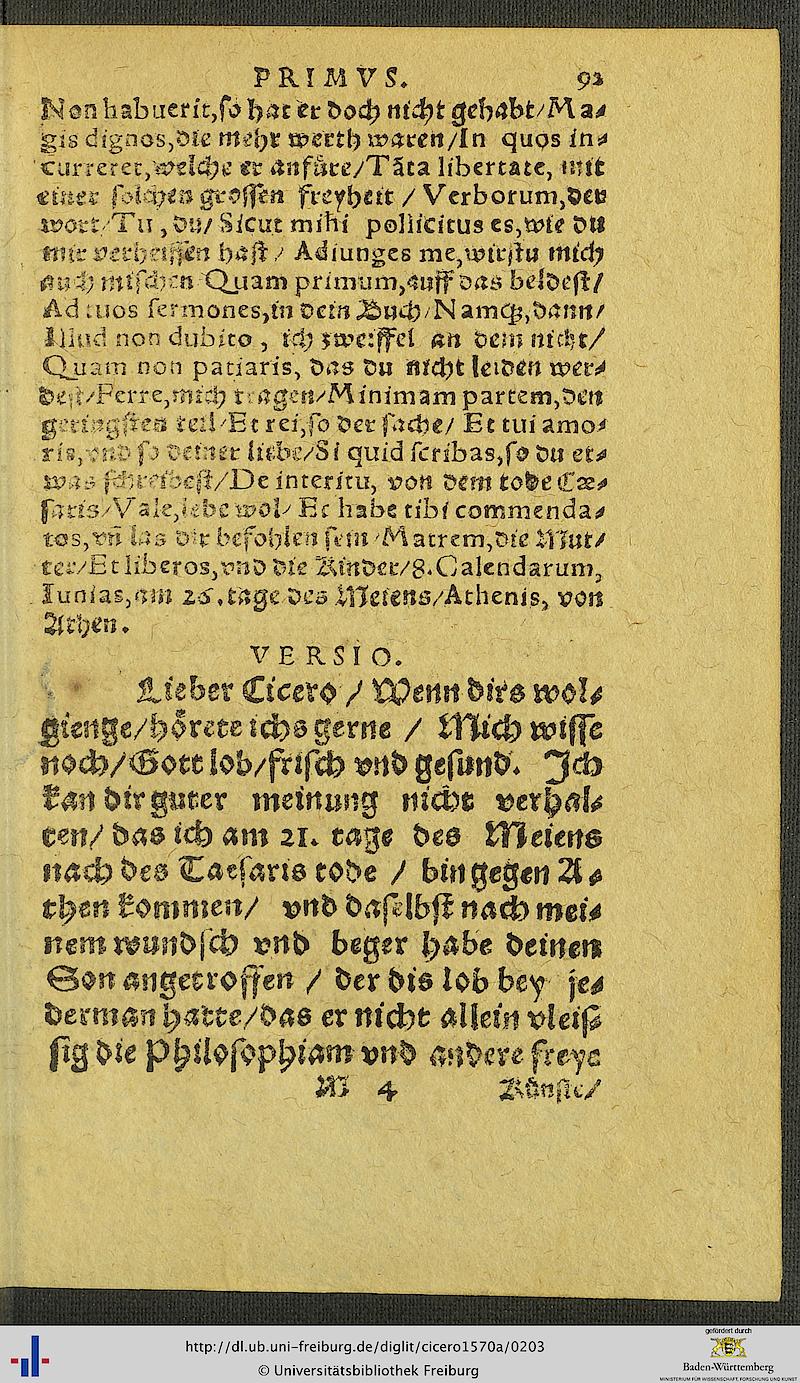 PRIMVS. 92
Non habuerit, so hat er doch nicht gehabt/ Ma⸗
gis dignos, die mehr werth waren/ In quos in⸗
curreret, welche er anfüre/ Tãta libertate, mit
einer solchen grossen freyheit / Verborum, der
wort/ Tu, du/ Sicut mihi pollicitus es, wie du
mir verheissen hast / Adiunges me, wirstu mich
auch mischen Quam primum, auff das beldest/
Ad tuos sermones, in dein Buch/ Namq;, dann/
Illud non dubito, ich zweiffel an dem nicht/
Quam non patiaris, das du nicht leiden wer⸗
dest/ Ferre, mich tragen/ Minimam partem, den
geringsten teil/ Et rei, so der sache/ Et tui amo⸗
ris, vnd so deiner liebe/ Si quid scribas, so du et⸗
was schreibest/ De interitu, von dem tode Cæ⸗
saris/ Vale, lebe wol/ Et habe tibi commenda⸗
tos, vñ las dir befohlen sein/ Matrem, die Mut/
ter/ Et liberos, vnd die Kinder/ 8. Calendarum,
Iunias, am 26. tage des Meiens/ Athenis, von
Athen.
VERSIO.
Lieber Cicero / Wenn dirs wol⸗
gienge/ hörete ichs gerne / Mich wisse
noch/ Gott lob/ frisch vnd gesund. Ich
kan dir guter meinung nicht verhal⸗
ten/ das ich am 21. tage des Meiens
nach des Caesaris tode / bin gegen A⸗
then kommen/ vnd daselbst nach mei⸗
nem wundsch vnd beger habe deinen
Son angetroffen / der dis lob bey je⸗
derman hatte/ das er nicht allein vleiß
sig die Philosophiam vnd andere freye
M 4 Künste/
http://dl.ub.uni-freiburg.de/diglit/cicero1570a/0203
© Universitätsbibliothek Freiburg
gefördert durch
Baden-Württemberg
MINISTERIUM FÜR WISSENSCHAFT, FORSCHUNG UND KUNST